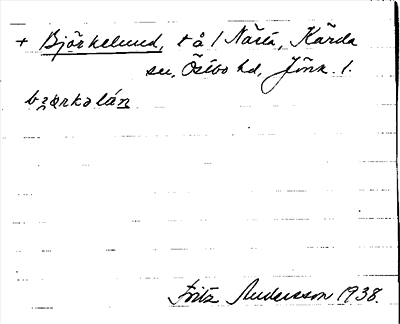 + Björkelund, t å 1 Nästa, Kärda
sn, Östbo hd, Jönk. l.
bzærkəlán
Fritz Andersson 1938.